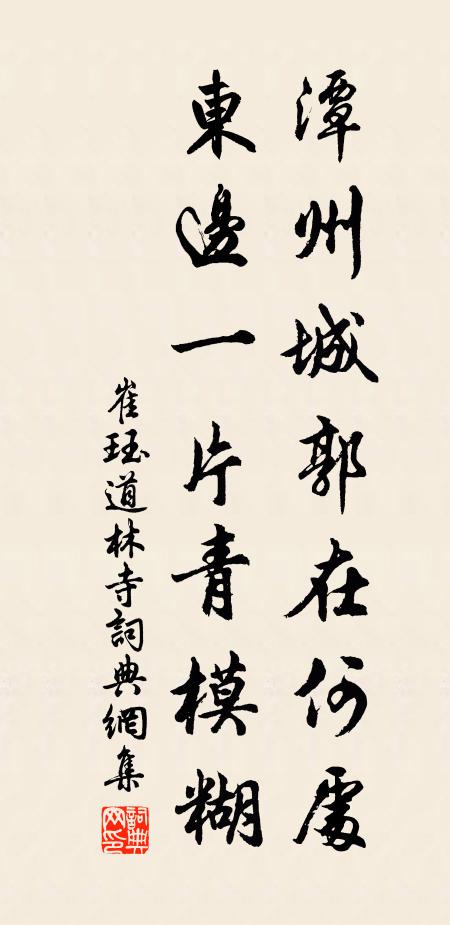 潭州城郭在何處
東邊一片青模糊
崔珏道林寺詞典網集
詞典网印